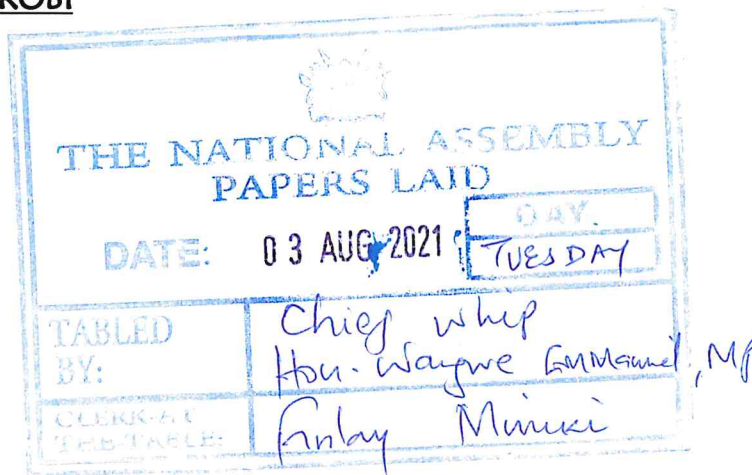 THE NATIONAL ASSEMBLY
PAPERS LAID
DAY.
DATE: 03 AUG 2021 TUESDAY
TABLED BY: Chief Whip
Hon. Wangwe Emmanuel, MP
CLERK-AT THE-TABLE: Finlay